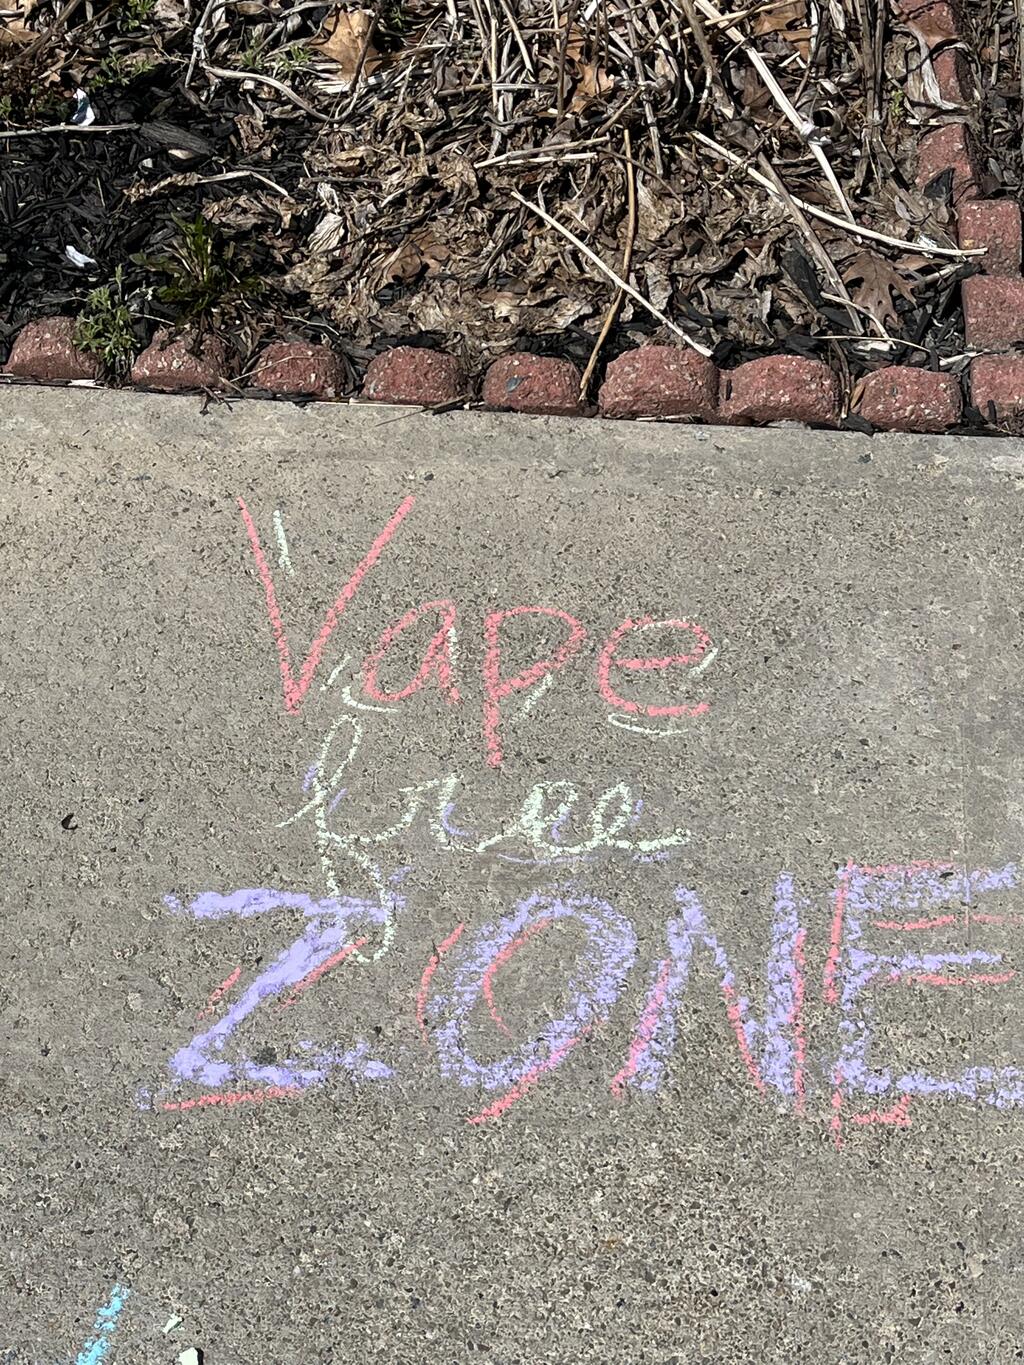 Vape
free
ZONE